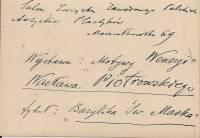 Salon Związku Zawodowego Polskich
Artystów Plastyków
Marszałkowska 69
Wystawa: "Motywy Wenecji"
Wacława Piotrowskiego
tytuł: "Bazylika Św. Marka"